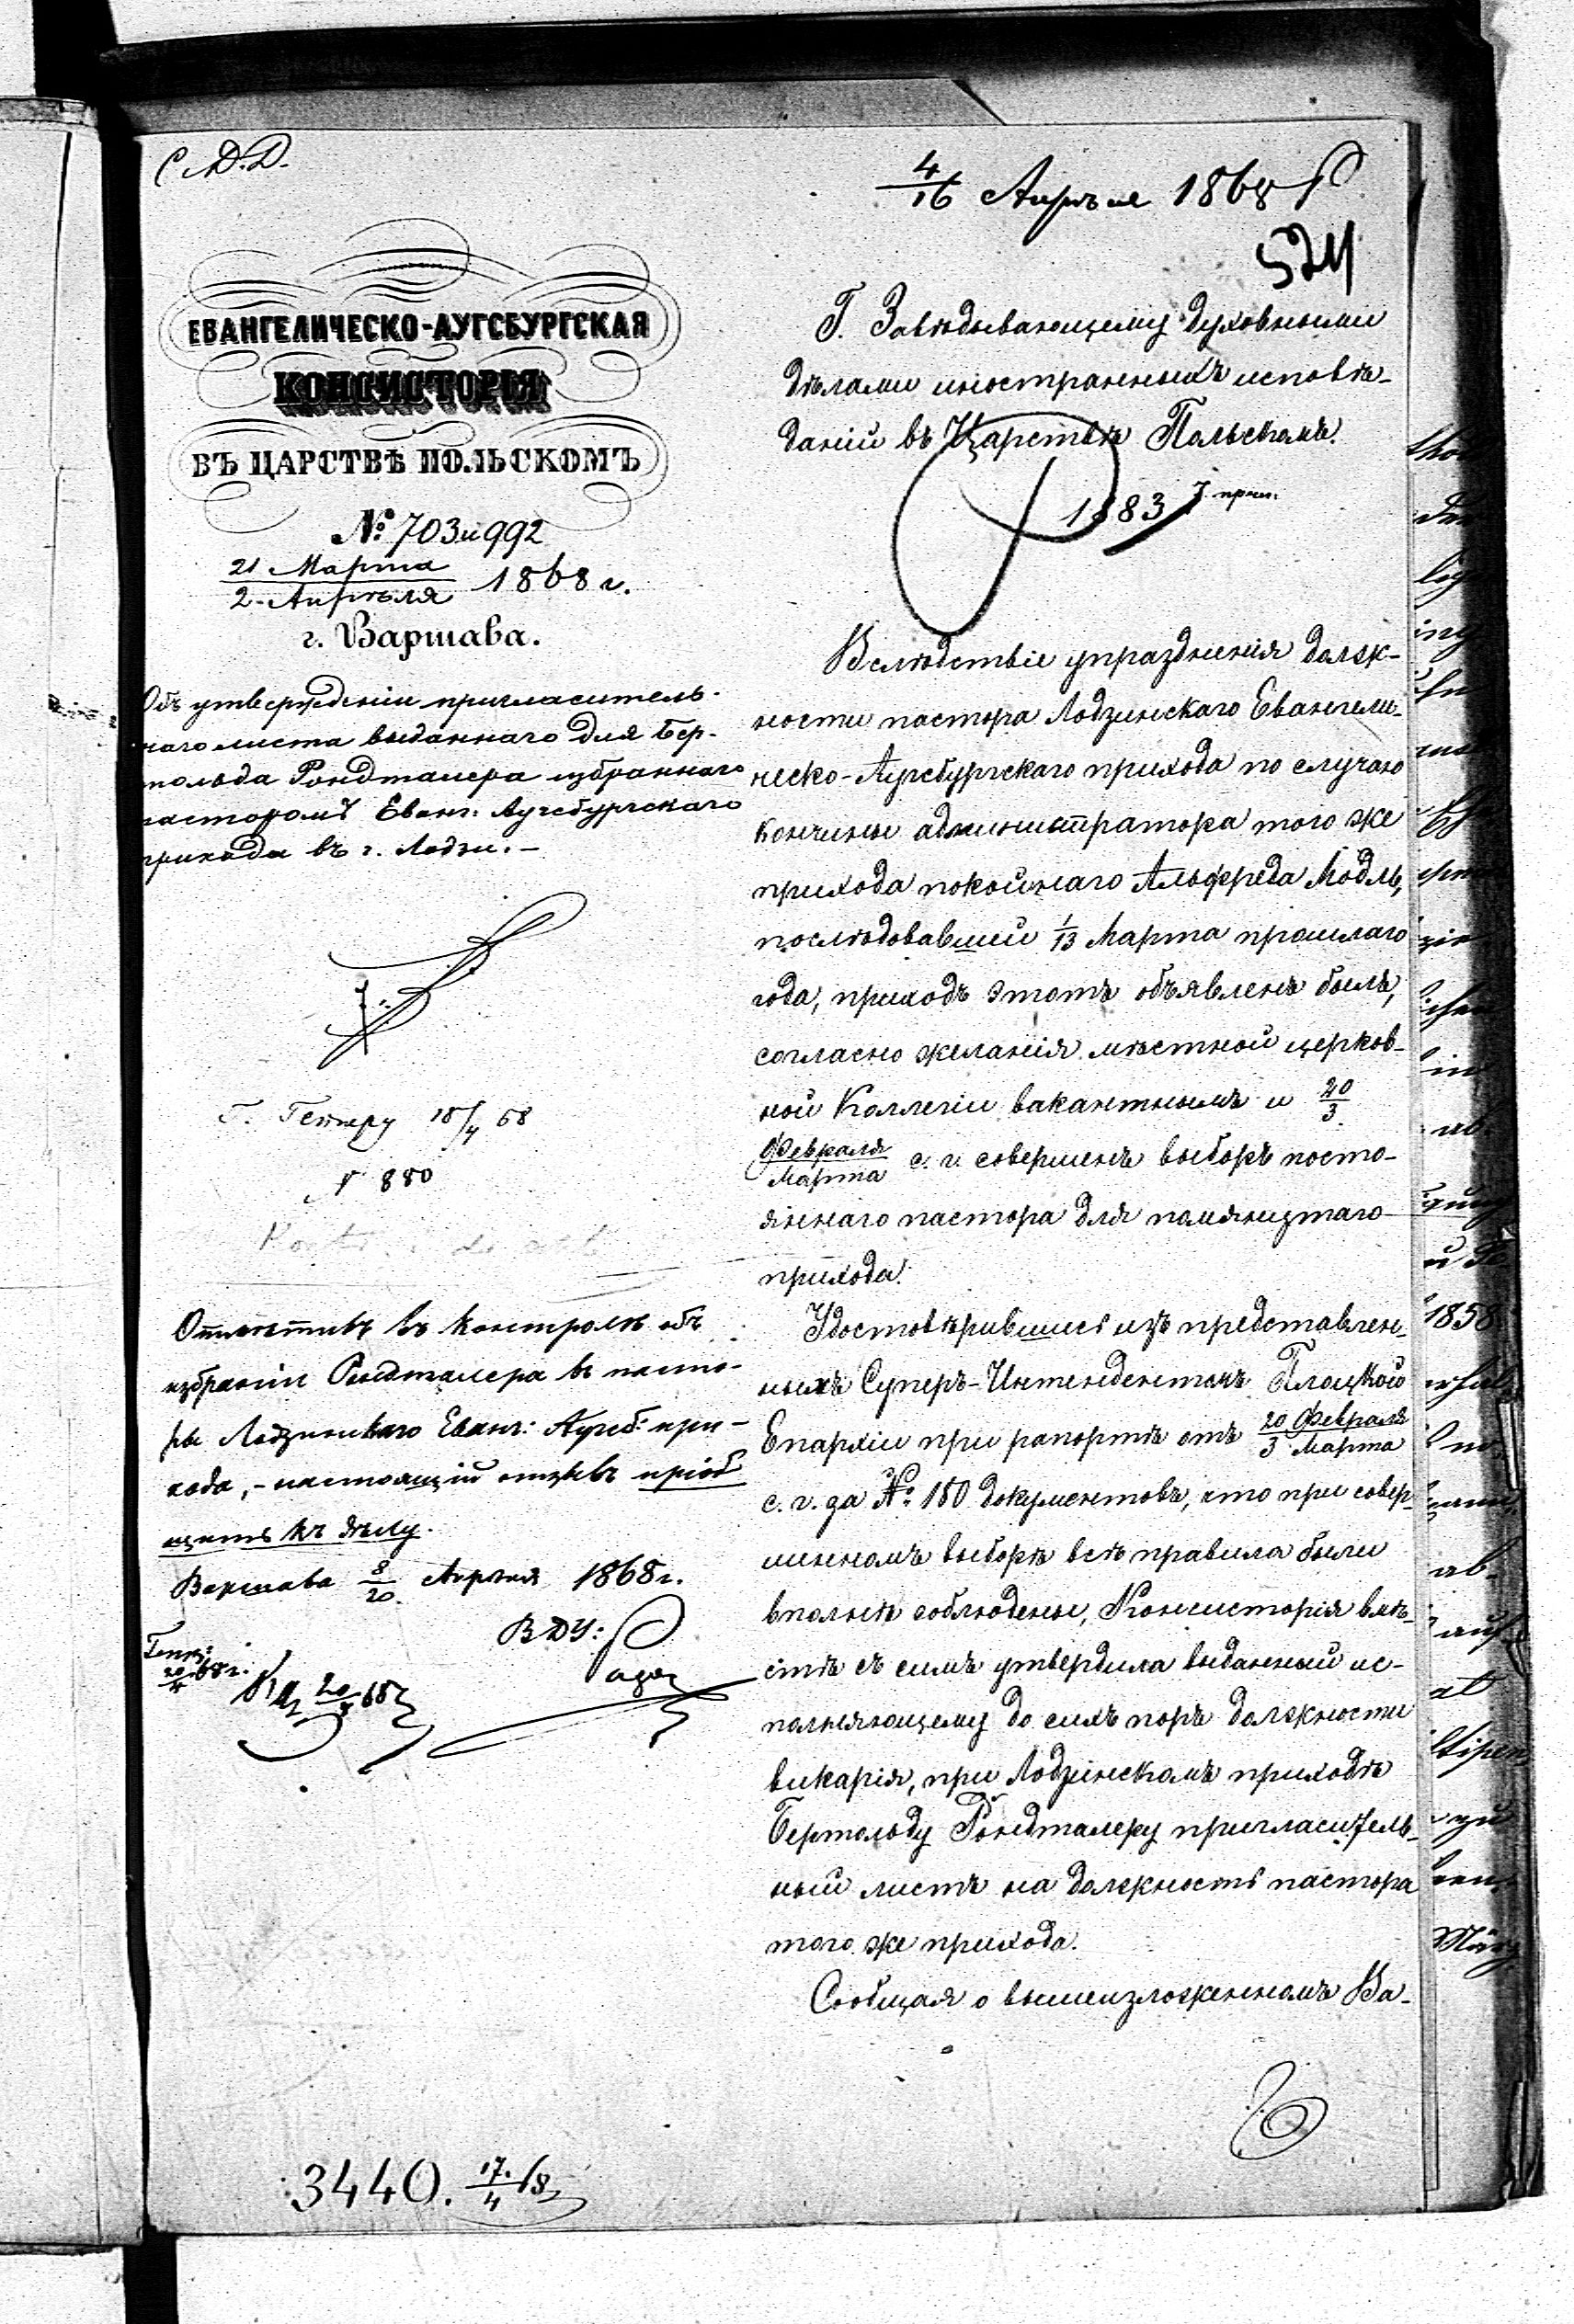 С.Д.Д.
4/16 Апрѣля 1868
524
ЕВАНГЕЛИЧЕСКО-АУГСБУРГСКАЯ
КОНСИСТОРІЯ
ВЪ ЦАРСТВѢ ПОЛЬСКОМЪ
№ 703 и 992
21 Марта
2 Апрѣля 1868 г.
г. Варшава.
Объ утвержденіи пригласитель-
наго листа выданнаго для Бер-
тольда Рондталера избраннаго
пасторомъ Еванг: Аугсбургскаго
прихода въ г. Лодзи.-
18/4 68
№ 880
Отмѣтивъ въ контролѣ объ
избраніи Рондталера въ пасто-
ры Лодзинскаго Еванг: Аугсб: при-
хода,- настоящій отзывъ пріоб
щить къ дѣлу.
Варшава 8/20 Апрѣля 1868 г.
ВДУ:
20/4 68 г.
3440. 17/4 68
Г. Завѣдывающему духовными
дѣлами иностранныхъ исповѣ-
даній въ Царствѣ Польскомъ.
1883
Вслѣдствіе упраздненія долж-
ности пастора Лодзинскаго Евангели-
ческо-Аугсбургскаго прихода по случаю
кончины администратора того же
прихода покойнаго Альфреда Модль,
послѣдовавшей 1/13 Марта прошлаго
года, приходъ этотъ объявленъ былъ,
согласно желанія мѣстной церков-
ной Коллегіи вакантнымъ и 20/3
Февраля/Марта с. г. совершенъ выборъ посто-
яннаго пастора для помянутаго
прихода.
Удостовѣрившись изъ представлен-
ныхъ Суперъ-Интендентомъ Плоцкой
Епархіи при рапортѣ отъ 20 Февраля/3 Марта
с. г. за № 180 документовъ, что при совер-
шенномъ выборѣ всѣ правила были
вполнѣ соблюдены, Консисторія вмѣ-
стѣ съ симъ утвердила выданный ис-
полняющему до сихъ поръ должности
викарія, при Лодзинскомъ приходѣ
Бертольду Рондталеру пригласитель-
ный листъ на должность пастора
того же прихода.
Сообщая о вышеизложенномъ Ва-